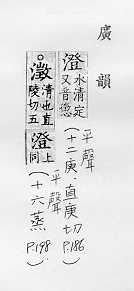 廣韻
澄水清定又音懲
平聲
(十二庚,直庚切 P.186)
。澂清也直陵切五澄上同
平聲
(十六蒸 P.198)